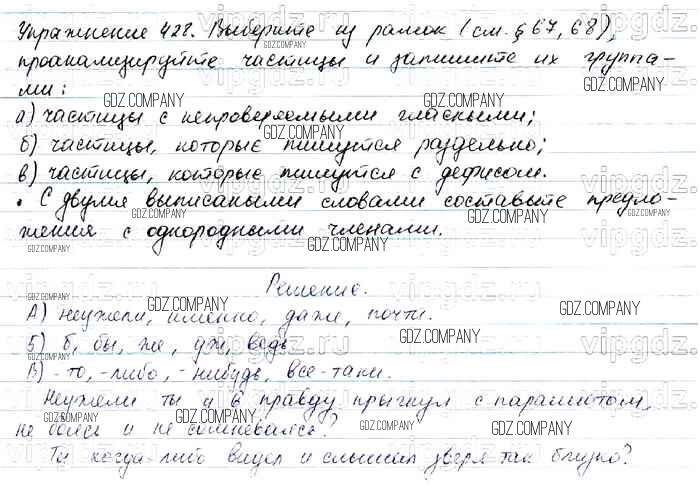 Упражнение 428. Выберите из рамок (см. § 67, 68),
проанализируйте частицы и запишите их группа-
ми:
а) частицы с непроверяемыми гласными;
б) частицы, которые пишутся раздельно;
в) частицы, которые пишутся с дефисом.
• С двумя выписаными словами составьте предло-
жения с однородными членами.
Решение.
А) неужели, именно, даже, почти.
Б) б, бы, же, уж, ведь
В) -то, -либо, -нибудь, все-таки.
Неужели ты и в правду прыгнул с парашютом,
не боясь и не сомневался?
Ты когда-либо видел и слышал зверя так близко?
GDZ.COMPANY
vipgdz.ru